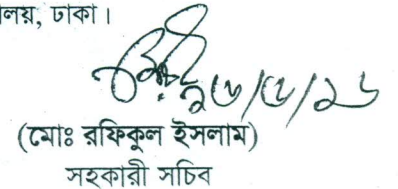 লয়, ঢাকা।
২৬/৫/১৬
(মোঃ রফিকুল ইসলাম)
সহকারী সচিব